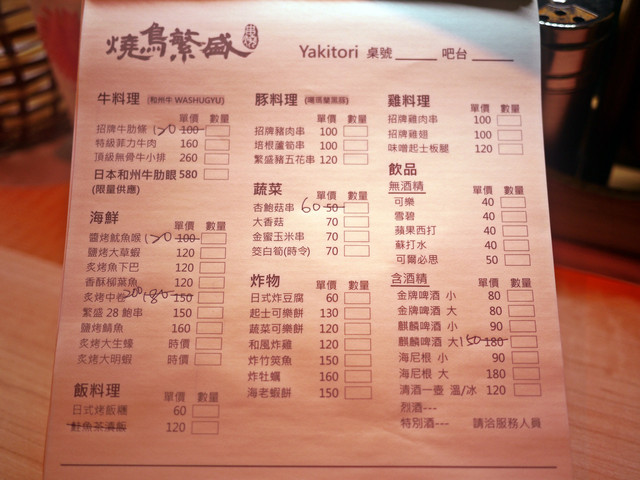 燒鳥繁盛
Yakitori 桌號 吧台
牛料理 (和州牛 WASHUGYU)
單價 數量
招牌牛肋條 100
特級菲力牛肉 160
頂級無骨牛小排 260
日本和州牛肋眼 580
(限量供應)
海鮮
單價 數量
鹽烤魷魚喉 100
鹽烤大草蝦 120
炙烤魚下巴 120
香酥柳葉魚 120
炙烤中卷 200 180 150
繁盛 28 鮑串 150
鹽烤鯖魚 160
炙烤大生蠔 時價
炙烤大明蝦 時價
飯料理 單價 數量
日式烤飯糰 60
鮭魚茶漬飯 120
豚料理 (嘎瑪蘭黑豚)
單價 數量
招牌豬肉串 100
培根蘆筍串 100
繁盛豬五花串 120
蔬菜
單價 數量
杏鮑菇串 60 50
大香菇 70
金蜜玉米串 70
筊白筍(時令) 70
炸物 單價 數量
日式炸豆腐 60
起士可樂餅 130
蔬菜可樂餅 120
和風炸雞 120
炸竹筴魚 150
炸牡蠣 160
海老蝦餅 150
雞料理
單價 數量
招牌雞肉串 100
招牌雞翅 100
味噌起士板腿 120
飲品
無酒精 單價 數量
可樂 40
雪碧 40
蘋果西打 40
蘇打水 40
可爾必思 50
含酒精 單價 數量
金牌啤酒 小 80
金牌啤酒 大 80
麒麟啤酒 小 90
麒麟啤酒 大 150 180
海尼根 小 90
海尼根 大 180
清酒一壺 溫/冰 120
烈酒---
特別酒--- 請洽服務人員